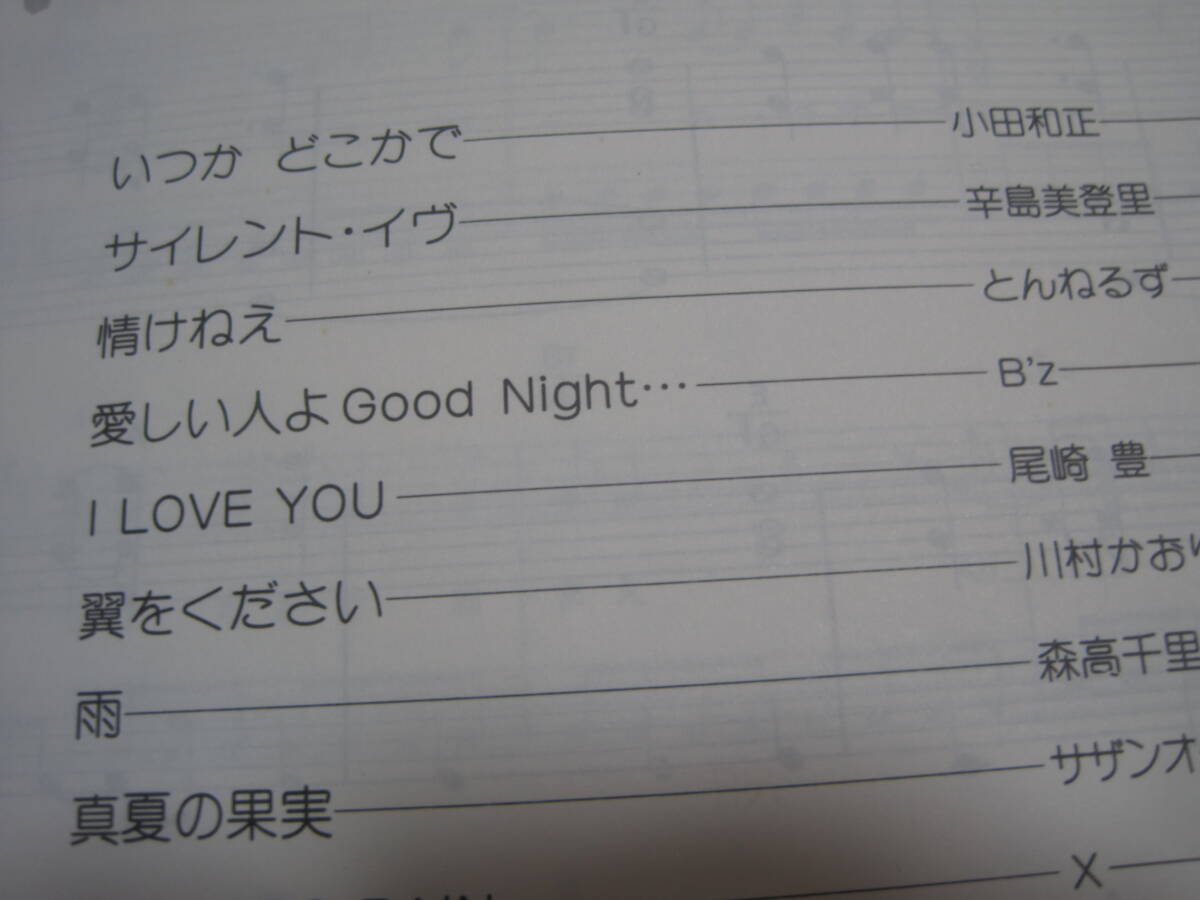 いつか どこかで 小田和正
サイレント・イヴ 辛島美登里
情けねえ とんねるず
愛しい人よGood Night… B'z
I LOVE YOU 尾崎 豊
翼をください 川村かおり
雨 森高千里
真夏の果実 サザンオ
X